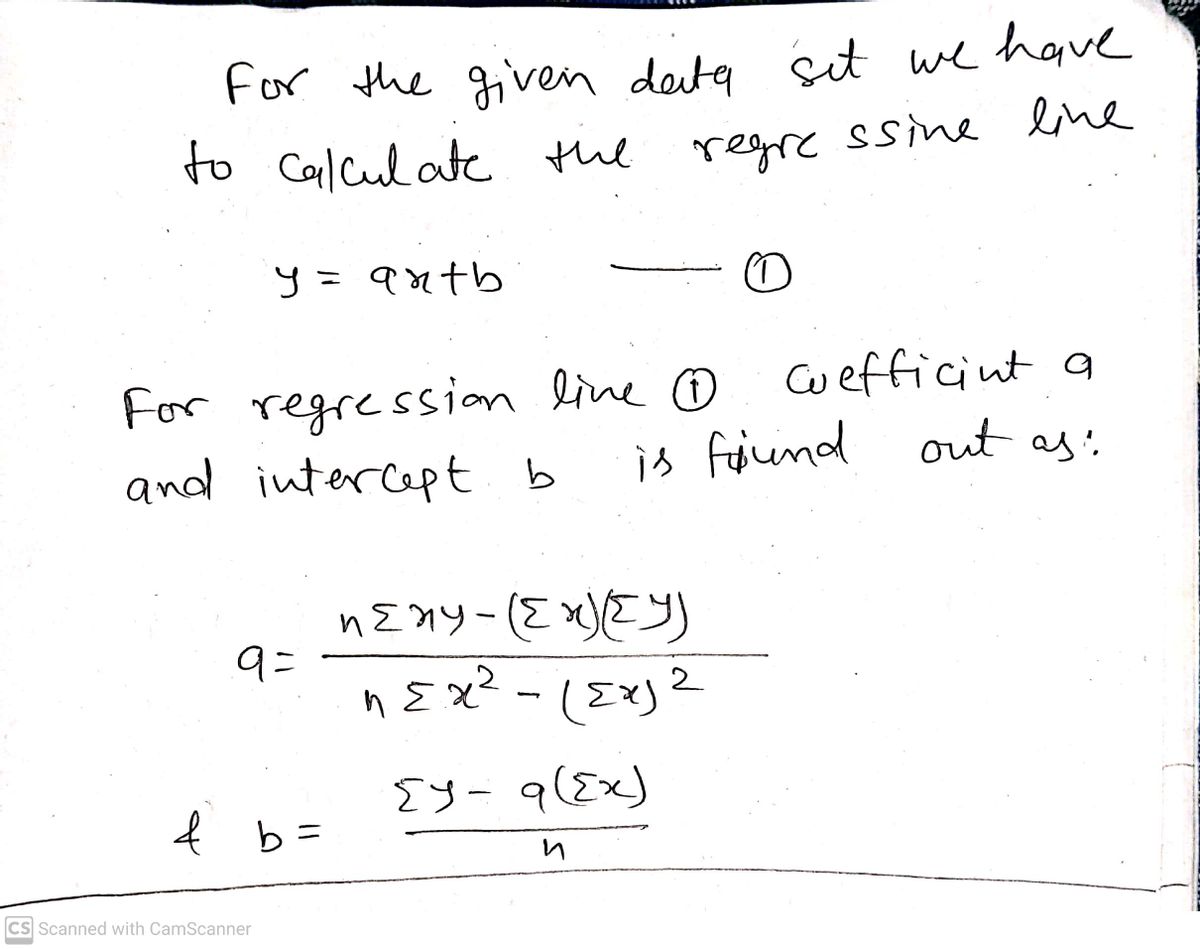 For the given data set we have
to calculate the regre ssine line
y = ax+b — ①
For regression line ① coefficint a
and intercept b is found out as:
a = nΣxy-(Σx)(Σy) / nΣx² - (Σx)²
& b = Σy - a(Σx) / n
CS Scanned with CamScanner